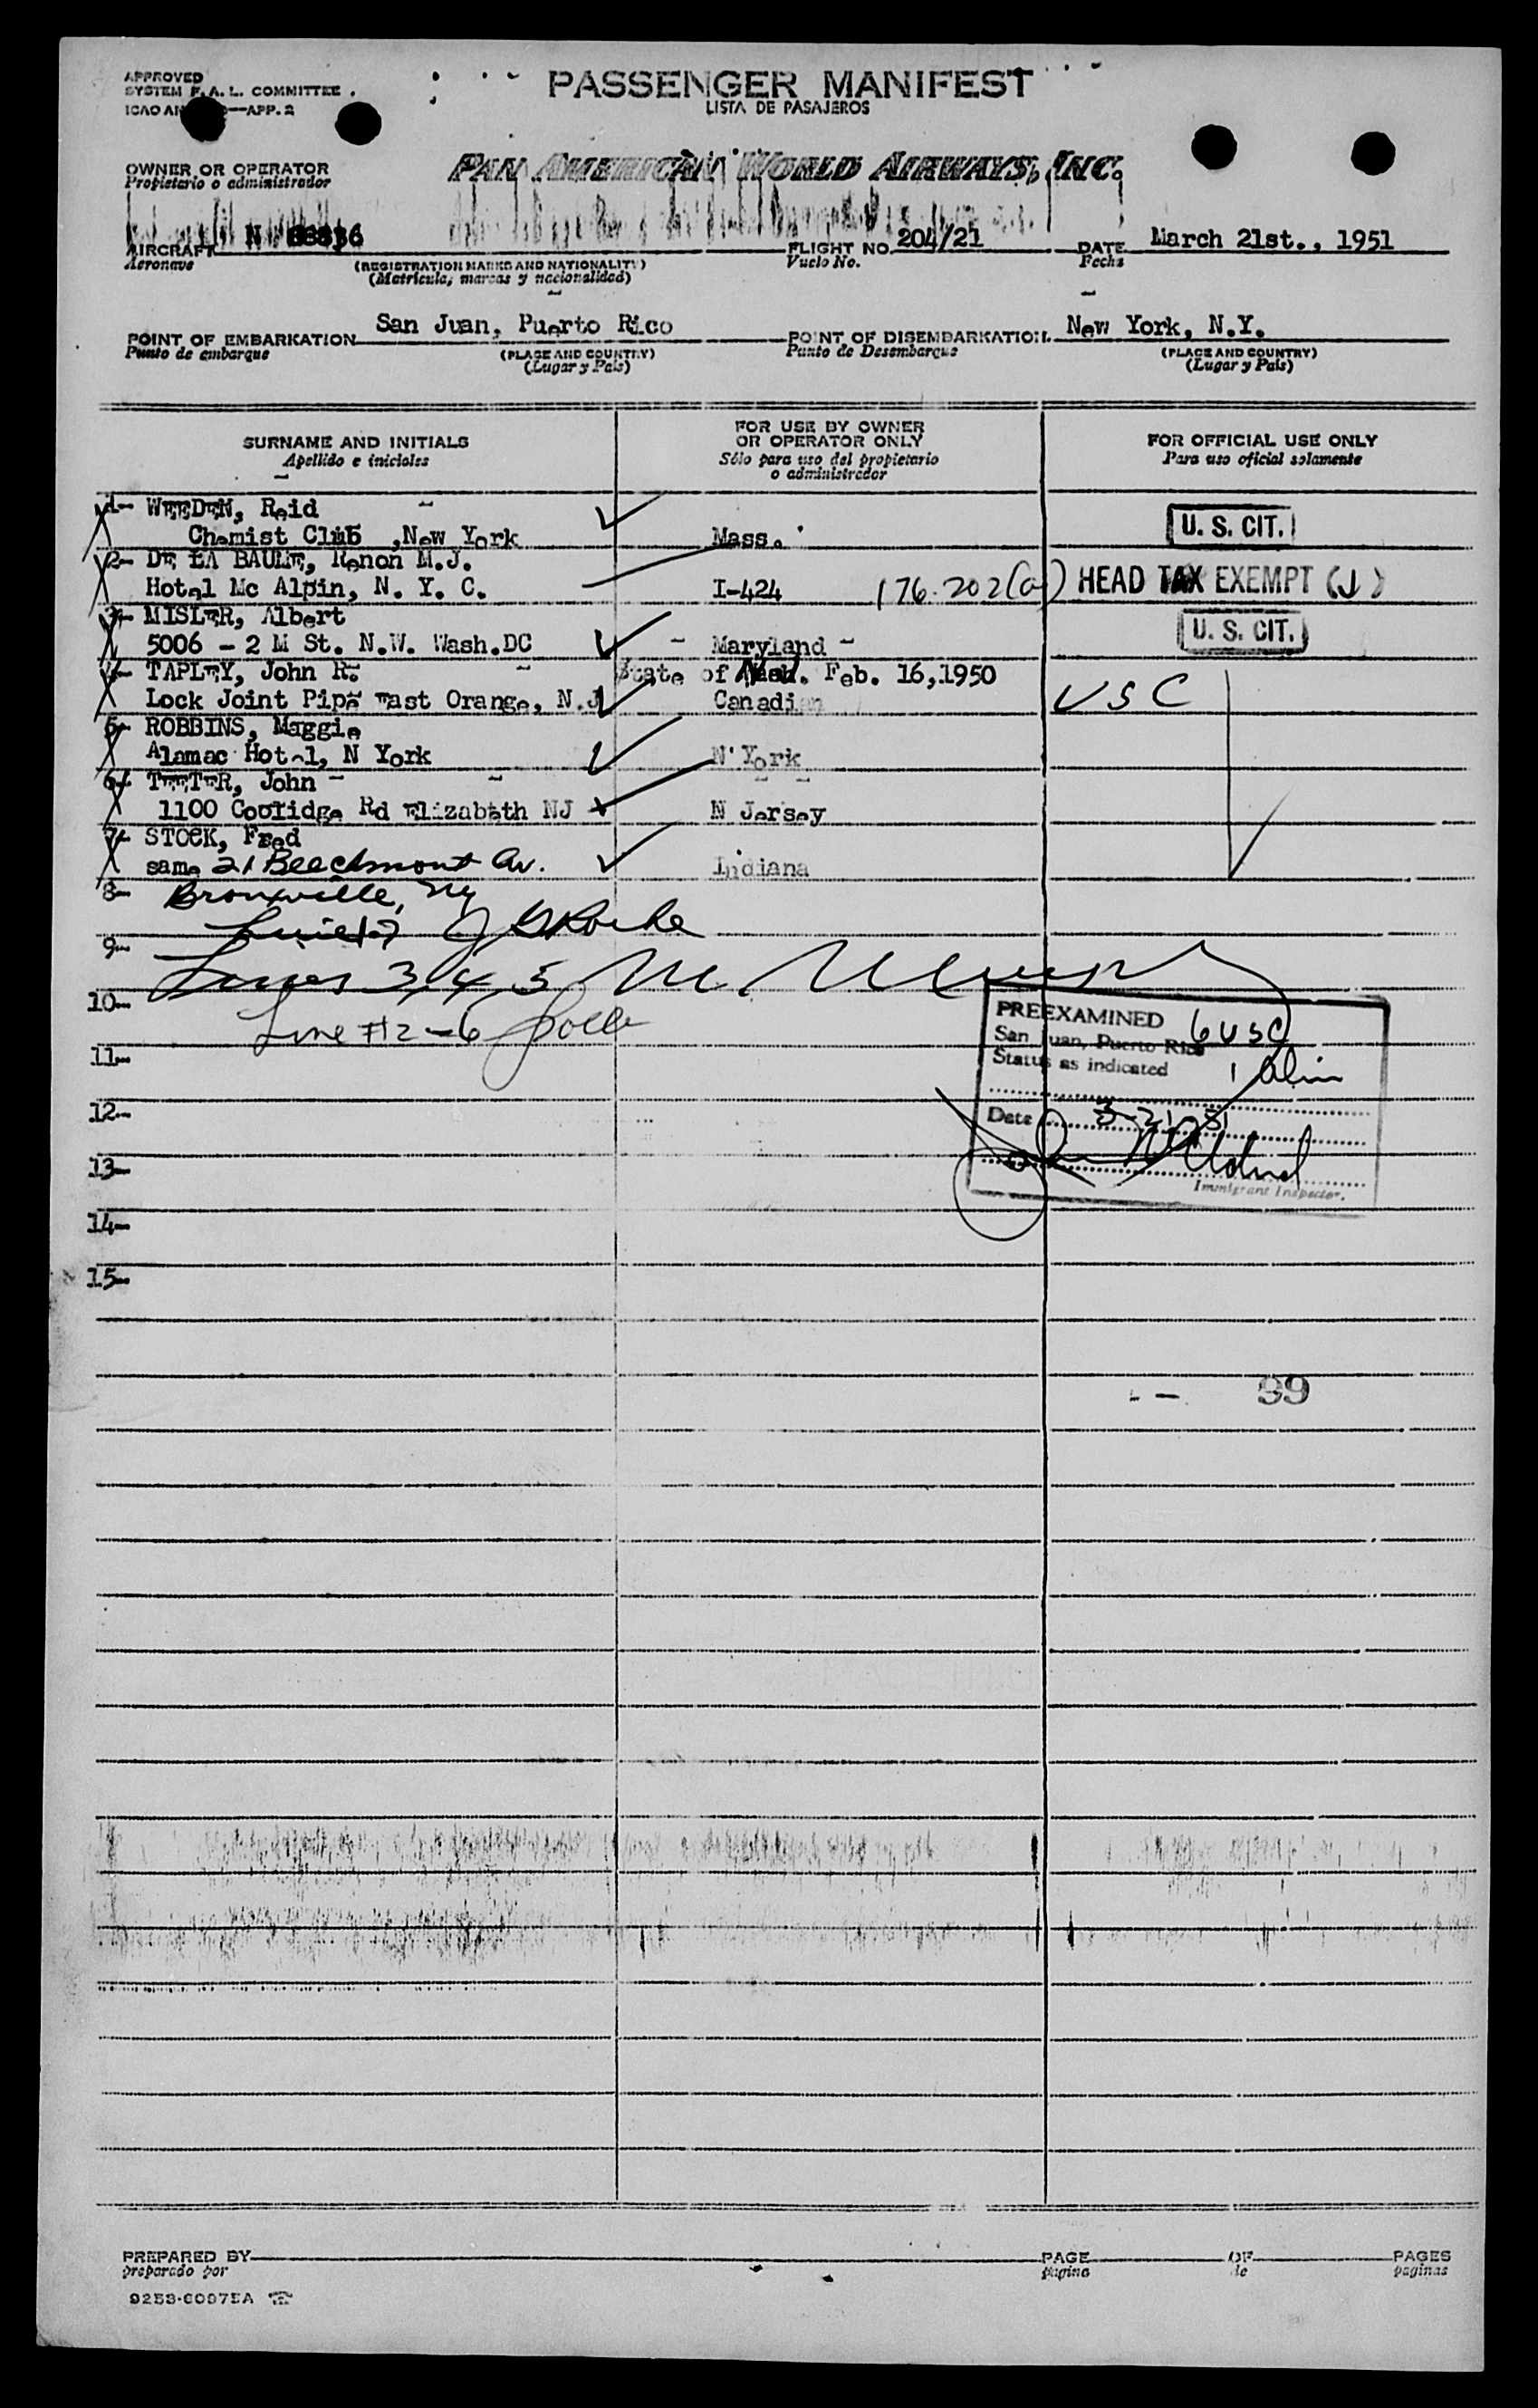 APPROVED
SYSTEM F. A. L. COMMITTEE
ICAO AN —APP. 2
PASSENGER MANIFEST
LISTA DE PASAJEROS
OWNER OR OPERATOR
Propietario o administrador
PAN AMERICAN WORLD AIRWAYS, INC.
AIRCRAFT N
Aeronave
(REGISTRATION MARKS AND NATIONALITY)
(Matricula, marcas y nacionalidad)
FLIGHT NO. 204/21
Vuelo No.
DATE March 21st., 1951
Fecha
POINT OF EMBARKATION San Juan, Puerto Rico
Punto de embarque
(PLACE AND COUNTRY)
(Lugar y País)
POINT OF DISEMBARKATION New York, N.Y.
Punto de Desembarque
(PLACE AND COUNTRY)
(Lugar y País)
SURNAME AND INITIALS
Apellido e iniciales
FOR USE BY OWNER
OR OPERATOR ONLY
Sólo para uso del propietario
o administrador
FOR OFFICIAL USE ONLY
Para uso oficial solamente
1- WEEDEN, Reid
Chemist Club ,New York Mass. U. S. CIT.
2- DE LA BAULE, Renon M.J.
Hotel Mc Alpin, N. Y. C. I-424 176.202(a) HEAD TAX EXEMPT (J)
3- MISLER, Albert
5006 - 2 M St. N.W. Wash.DC - Maryland - U. S. CIT.
4- TAPLEY, John R. State of Feb. 16,1950
Lock Joint Pipe East Orange, N.J Canadian USC
5- ROBBINS, Maggie
Alamac Hotel, N York N York
6- TEETER, John
1100 Coolidge Rd Elizabeth NJ N Jersey
7- STOCK, Fred
same 21 Beechmont Av. Indiana
8- Bronxville, NY
9-
Lines 3, 4 5
10-
Line #2-6
11-
12-
13-
14-
15-
PREEXAMINED
San Juan, Puerto Rico 6 USC
Status as indicated 1 Alien
Date 3-21-51
Immigrant Inspector.
99
PREPARED BY
preparado por
PAGE OF PAGES
pagina de paginas